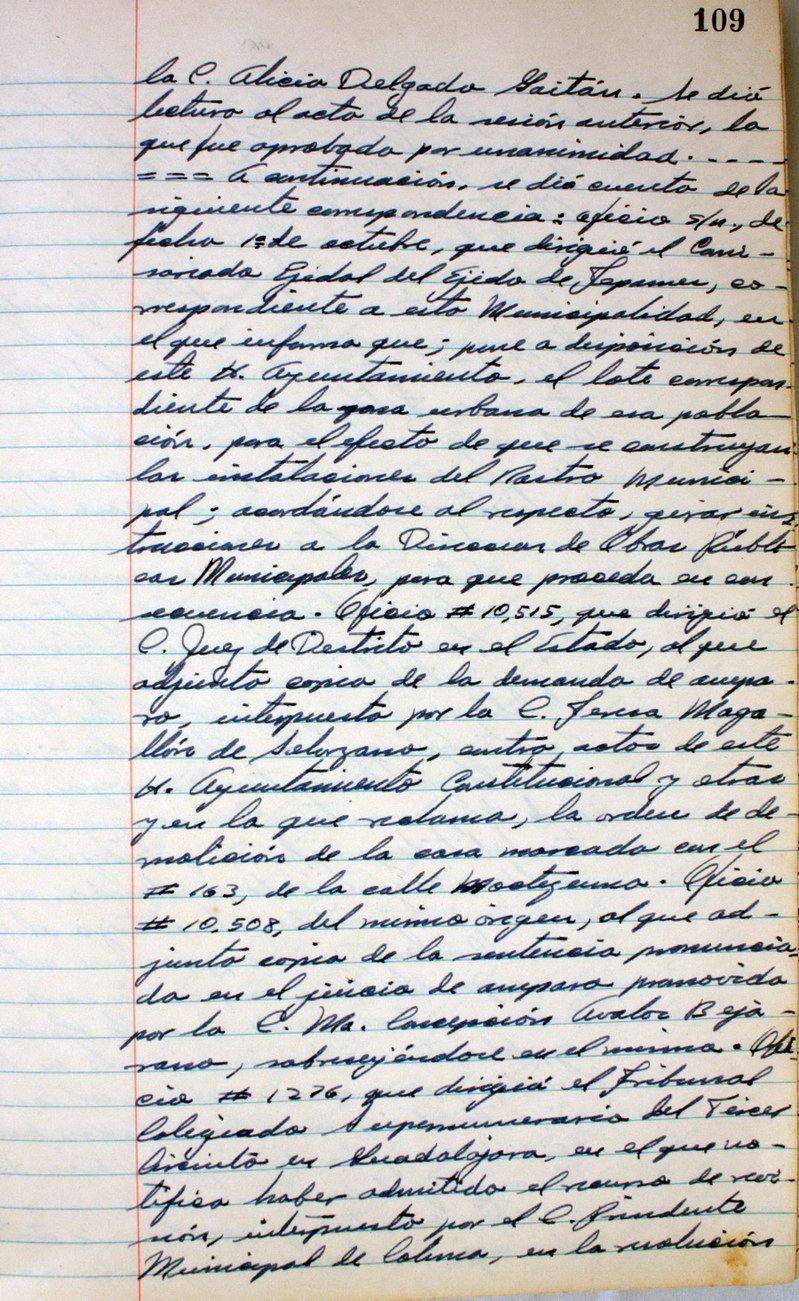 109
la C. Alicia Delgado Gaitán. Se dió
lectura al acta de la sesión anterior, la
que fue aprobada por unanimidad. - - - -
= = = A continuación, se dió cuenta de la
siguiente correspondencia: oficio s/n., de
fecha 1o. de octubre, que dirigió el Comi-
sariado Ejidal del Ejido de Tepames, co-
rrespondiente a esta Municipalidad, en
el que informa que; pone a disposición de
este H. Ayuntamiento, el lote correspon-
diente de la zona urbana de esa pobla-
ción, para el efecto de que se construyan
las instalaciones del Rastro Munici-
pal; acordándose al respecto, girar ins-
trucciones a la Dirección de Obras Públi-
cas Municipales, para que proceda en con-
secuencia. Oficio # 10,515, que dirigió el
C. Juez de Distrito en el Estado, al que
adjunta copia de la demanda de ampa-
ro, interpuesta por la C. Teresa Maga-
llón de Solorzano, contra actos de este
H. Ayuntamiento Constitucional y otras
y en la que reclama, la orden de de-
molición de la casa marcada con el
# 163, de la calle Moctezuma. Oficio
# 10,508, del mismo órigen, al que ad-
junta copia de la sentencia pronuncia-
da en el juicio de amparo promovido
por la C. Ma. Concepción Avalos Beja-
rano, sobreseyéndose en el mismo. Ofi-
cio # 1276, que dirigió el Tribunal
Colegiado Supernumerario del Tercer
Circuito en Guadalajara, en el que no-
tifica haber admitido el recurso de revi-
sión, interpuesto por el C. Presidente
Municipal de Colima, en la resolución